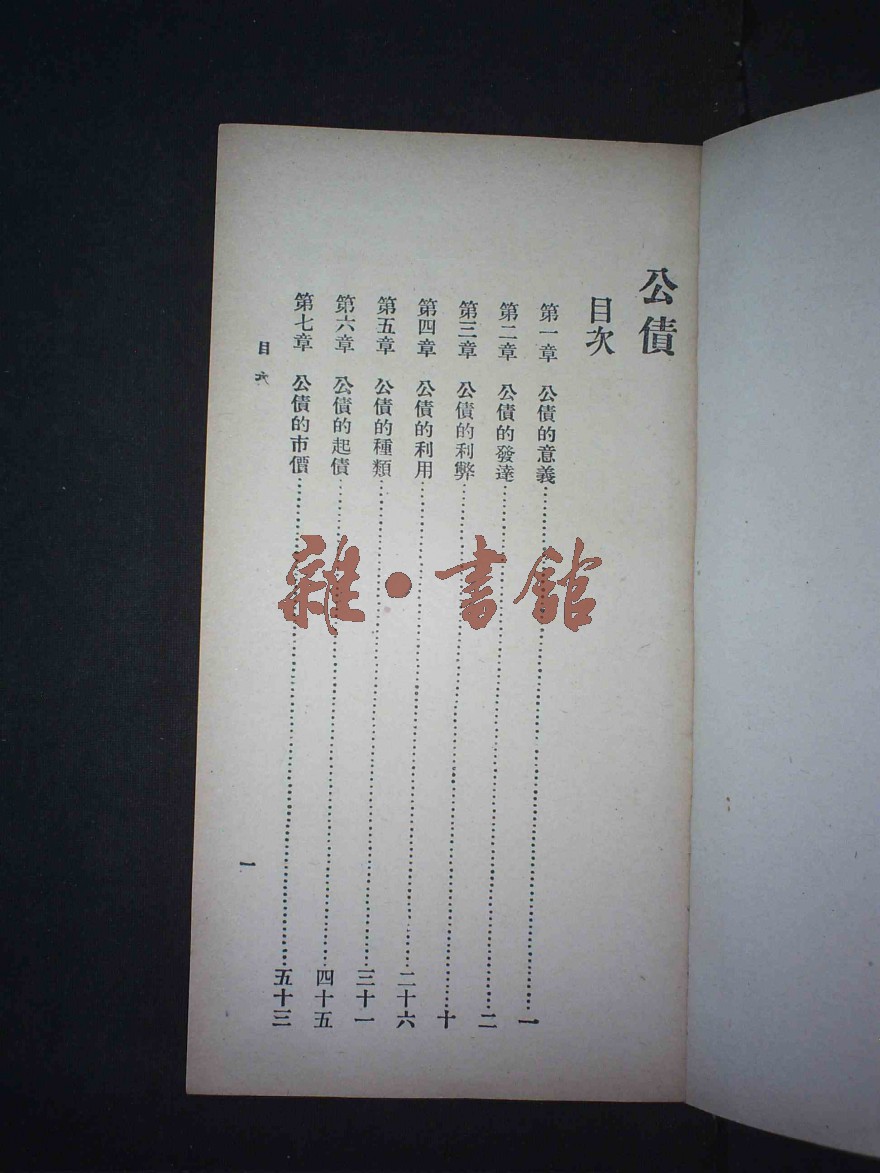 公債
目次
第一章 公債的意義⋯⋯⋯⋯⋯⋯⋯⋯一
第二章 公債的發達⋯⋯⋯⋯⋯⋯⋯⋯二
第三章 公債的利弊⋯⋯⋯⋯⋯⋯⋯⋯十
第四章 公債的利用⋯⋯⋯⋯⋯⋯⋯⋯二十六
第五章 公債的種類⋯⋯⋯⋯⋯⋯⋯⋯三十一
第六章 公債的起債⋯⋯⋯⋯⋯⋯⋯⋯四十五
第七章 公債的市價⋯⋯⋯⋯⋯⋯⋯⋯五十三
目次
一
雜·書館